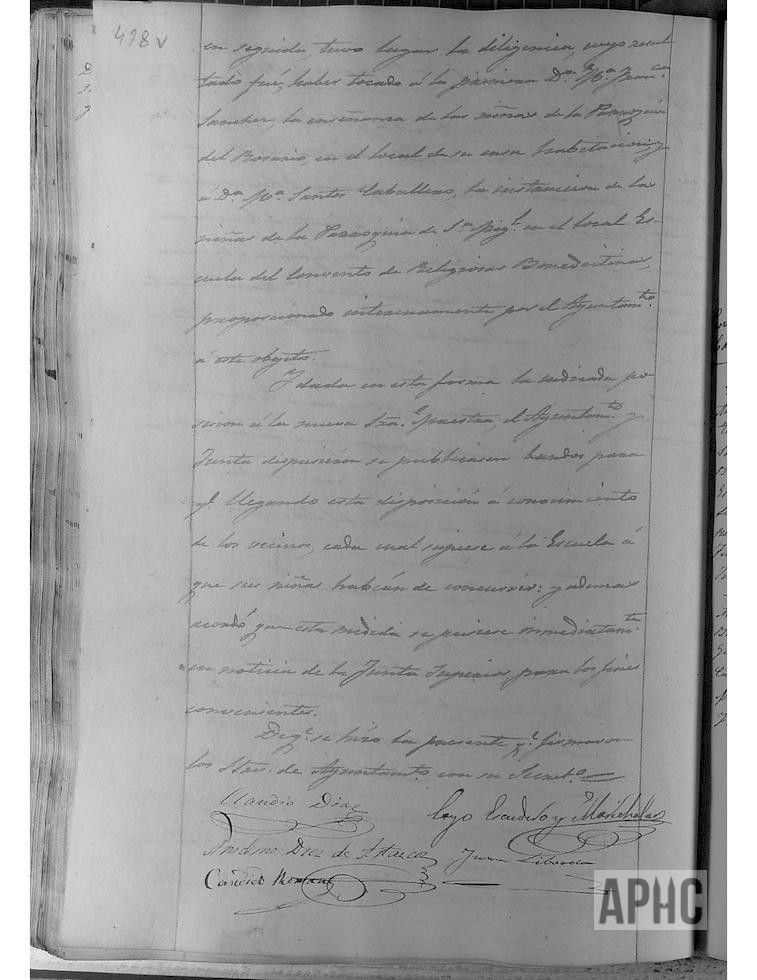 418 v
en seguida, tuvo lugar la diligencia, cuyo resul
tado fué, haber tocado á la primera D.ª M.ª Fran.ca
Sanchez, la enseñanza de las niñas de la Parroquia
del Rosario, en el local de su casa habitacion; y
á D.ª M.ª Santos Caballero, la instruccion de las
niñas de la Parroquia de S.n Mig.l en el local Es-
cuela del Convento de Religiosas Benedictinas,
proporcionado interinamente por el Ayuntam.to
á este objeto.
Y dada en esta forma la indicada po
sesion á la nueva Sra. maestra, el Ayuntam.to y
Junta dispusieron se publicasen bandos para
q.e llegando esta disposicion á conocimiento
de los vecinos, cada cual supiese á la Escuela á
que sus niñas habian de concurrir: y ademas
acordó que esta medida se pusiese inmediatam.te
en noticia de la Junta Superior, para los fines
convenientes.
De q.e se hizo la presente q.e firmaron
los Sres. de Ayuntamto. con su Secret.o
Claudio Diaz Cayo Escudero y Marichalar
Anselmo Diez de Juan
Candido Roman
APHC